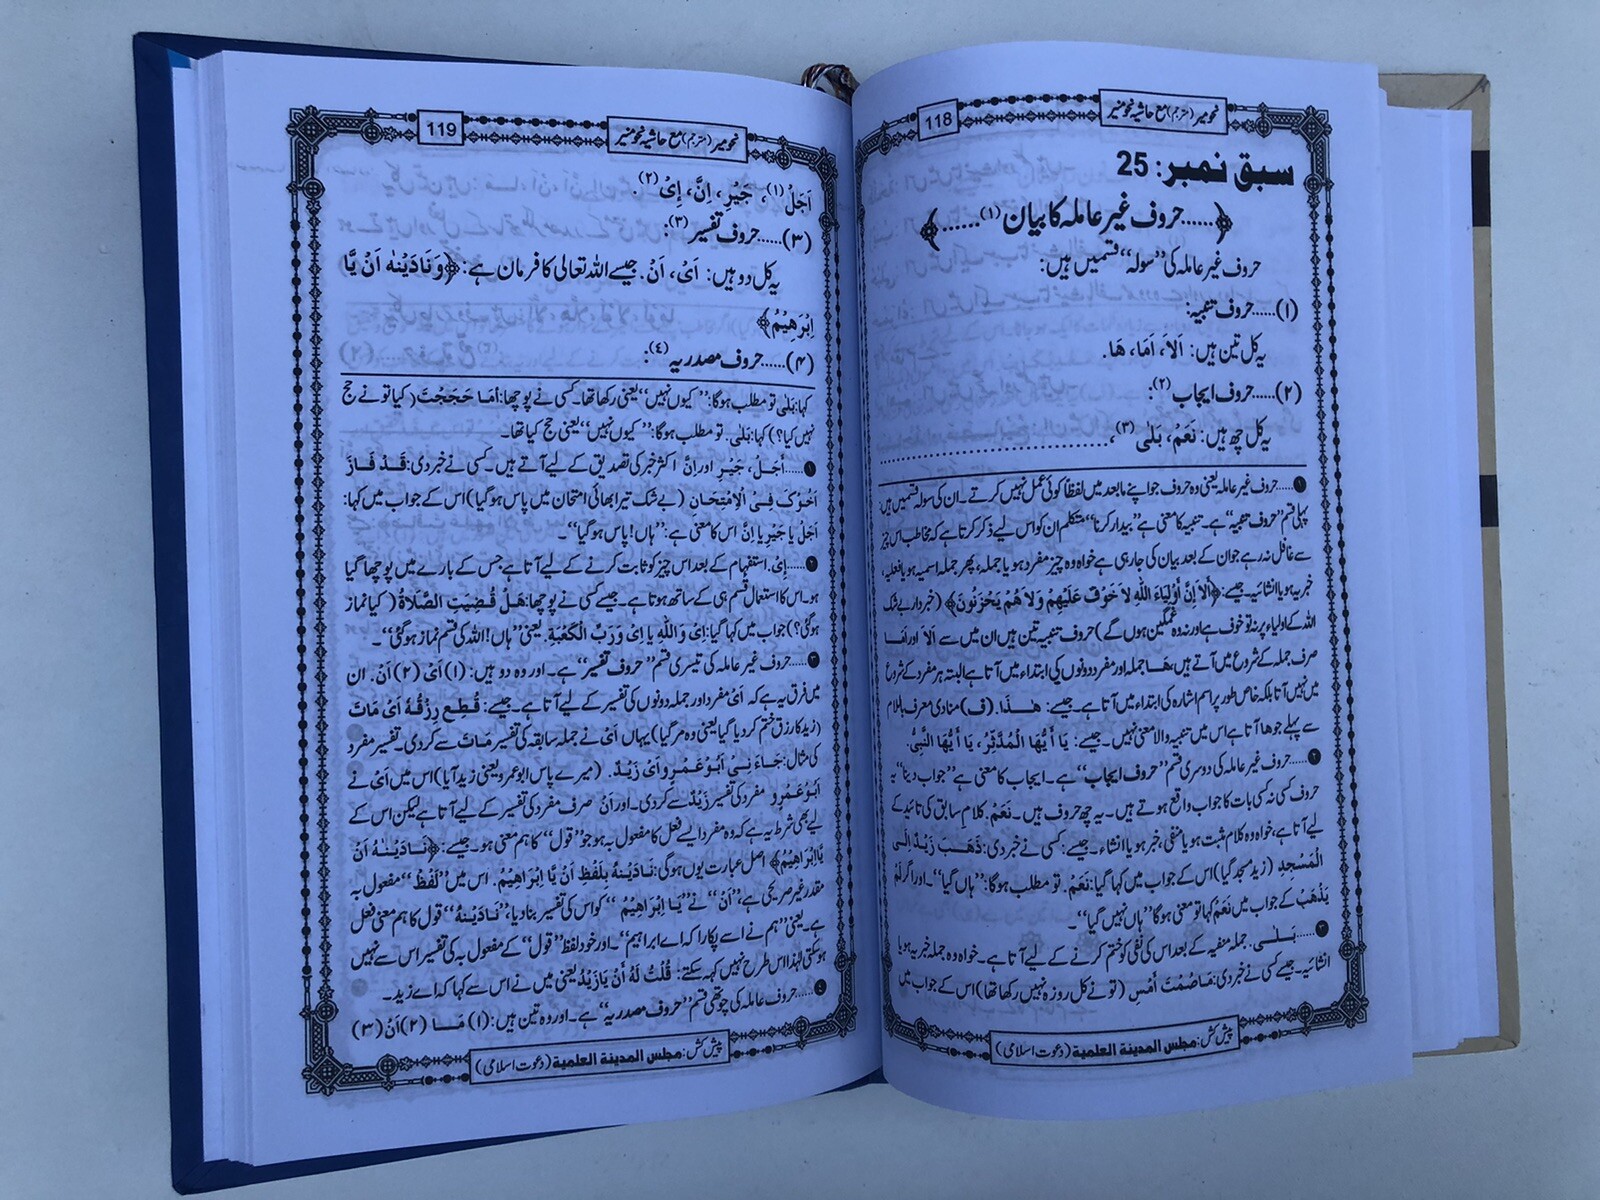 118
نحومیر (مترجم) مع حاشیہ نحو منیر
سبق نمبر: 25
﴿......حروف غیر عاملہ کا بیان (۱)......﴾
حروف غیر عاملہ کی ”سولہ“ قسمیں ہیں:
(۱)......حروف تنبیہ:
یہ کل تین ہیں: اَلاَ، اَمَا، هَا.
(۲)......حروف ایجاب (۲):
یہ کل چھ ہیں: نَعَمْ، بَلٰی (۳)،......................................
۱......حروف غیر عاملہ یعنی وہ حروف جو اپنے مابعد میں لفظاً کوئی عمل نہیں کرتے۔ ان کی سولہ قسمیں ہیں:
پہلی قسم ”حروف تنبیہ“ ہے۔ تنبیہ کا معنی ہے ”بیدار کرنا“ متکلم ان کو اس لیے ذکر کرتا ہے کہ مخاطب اس چیز
سے غافل نہ رہے جو ان کے بعد بیان کی جارہی ہے خواہ وہ چیز مفرد ہو یا جملہ، پھر جملہ اسمیہ ہو یا فعلیہ،
خبریہ ہو یا انشائیہ۔ جیسے: ﴿اَلاَ اِنَّ أَوْلِیَاءَ اللّٰهِ لاَ خَوْفٌ عَلَیْهِمْ وَلاَ هُمْ یَحْزَنُوْنَ﴾ (خبردار بے شک
اللہ کے اولیاء پر نہ تو خوف ہے اور نہ وہ غمگین ہوں گے) حروف تنبیہ تین ہیں ان میں سے اَلاَ اور اَمَا
صرف جملہ کے شروع میں آتے ہیں، هَا جملہ اور مفرد دونوں کی ابتداء میں آتا ہے البتہ ہر مفرد کے شروع
میں نہیں آتا بلکہ خاص طور پر اسم اشارہ کی ابتداء میں آتا ہے۔ جیسے: هٰذَا. (ف) منادی معرف باللام
سے پہلے جو ها آتا ہے اس میں تنبیہ والا معنی نہیں۔ جیسے: یَا أَیُّهَا الْمُدَّثِّرُ، یَا أَیُّهَا النَّبِیُّ.
۲......حروف غیر عاملہ کی دوسری قسم ”حروف ایجاب“ ہے۔ ایجاب کا معنی ہے ”جواب دینا“ یہ
حروف کسی نہ کسی بات کا جواب واقع ہوتے ہیں۔ یہ چھ حروف ہیں۔ نَعَمْ. کلامِ سابق کی تائید کے
لیے آتا ہے، خواہ وہ کلام مثبت ہو یا منفی، خبر ہو یا انشاء۔ جیسے: کسی نے خبر دی: ذَهَبَ زَیْدٌ اِلَی
الْمَسْجِدِ (زید مسجد گیا) اس کے جواب میں کہا گیا: نَعَمْ. تو مطلب ہوگا: ”ہاں گیا“۔ اور اگر لَمْ
یَذْهَبْ کے جواب میں نَعَمْ کہا تو معنی ہوگا ”ہاں نہیں گیا“۔
۳......بَلٰی. جملہ منفیہ کے بعد اس کی نفی کو ختم کرنے کے لیے آتا ہے۔ خواہ وہ جملہ خبریہ ہو یا
انشائیہ۔ جیسے کسی نے خبر دی: مَا صُمْتَ أَمْسِ (تو نے کل روزہ نہیں رکھا تھا) اس کے جواب میں
پیش کش: مجلس المدینة العلمیة (دعوت اسلامی)
119
نحومیر (مترجم) مع حاشیہ نحو منیر
اَجَلْ (۱)، جَیْرِ، اِنَّ، اِیْ (۲).
(۳)......حروف تفسیر (۳):
یہ کل دو ہیں: اَیْ، اَنْ. جیسے اللہ تعالی کا فرمان ہے: ﴿وَنَادَیْنٰهُ اَنْ یَّا
اِبْرٰهِیْمُ﴾
(۴)......حروف مصدریہ (٤):
کہا: بَلٰی تو مطلب ہوگا: ”کیوں نہیں“ یعنی رکھا تھا۔ کسی نے پوچھا: أَمَا حَجَجْتَ (کیا تو نے حج
نہیں کیا؟) کہا: بَلٰی. تو مطلب ہوگا: ”کیوں نہیں“ یعنی حج کیا تھا۔
۱......أَجَلْ، جَیْرِ اور اِنَّ اکثر خبر کی تصدیق کے لیے آتے ہیں۔ کسی نے خبر دی: قَدْ فَازَ
اَخُوْکَ فِی الْاِمْتِحَانِ (بے شک تیرا بھائی امتحان میں پاس ہوگیا) اس کے جواب میں کہا:
اَجَلْ یا جَیْرِ یا اِنَّ اس کا معنی ہے: ”ہاں! پاس ہوگیا“۔
۲......اِیْ. استفہام کے بعد اس چیز کو ثابت کرنے کے لیے آتا ہے جس کے بارے میں پوچھا گیا
ہو۔ اس کا استعمال قسم ہی کے ساتھ ہوتا ہے۔ جیسے کسی نے پوچھا: هَلْ قُضِیَتِ الصَّلَاةُ (کیا نماز
ہوگئی؟) جواب میں کہا گیا: اِیْ وَاللّٰهِ یا اِیْ وَرَبِّ الْکَعْبَةِ. یعنی ”ہاں! اللہ کی قسم نماز ہوگئی“۔
۳......حروف غیر عاملہ کی تیسری قسم ”حروف تفسیر“ ہے۔ اور وہ دو ہیں: (۱) اَیْ (۲) اَنْ. ان
میں فرق یہ ہے کہ اَیْ مفرد اور جملہ دونوں کی تفسیر کے لیے آتا ہے۔ جیسے: قُطِعَ رِزْقُهٗ اَیْ مَاتَ
(زید کا رزق ختم کردیا گیا یعنی وہ مرگیا) یہاں اَیْ نے جملہ سابقہ کی تفسیر مَاتَ سے کردی۔ تفسیر مفرد
کی مثال: جَاءَ نِیْ اَبُوْ عَمْرٍو اَیْ زَیْدٌ. (میرے پاس ابو عمرو یعنی زید آیا) اس میں اَیْ نے
اَبُوْ عَمْرٍو مفرد کی تفسیر زَیْدٌ سے کردی۔ اور اَنْ صرف مفرد کی تفسیر کے لیے آتا ہے لیکن اس کے
لیے بھی شرط یہ ہے کہ وہ مفرد ایسے فعل کا مفعول بہ ہو جو ”قول“ کا ہم معنی ہو۔ جیسے: ﴿نَادَیْنٰهُ اَنْ
یَّا اِبْرَاهِیْمُ﴾ اصل عبارت یوں ہوگی: نَادَیْنٰهُ بِلَفْظِ أَنْ یَّا اِبْرَاهِیْمُ. اس میں ”لَفْظ“ مفعول بہ
مقدر غیر صریحی ہے، ”أَنْ“ نے ”یَا اِبْرَاهِیْمُ“ کو اس کی تفسیر بنادیا، ”نَادَیْنٰهُ“ قول کا ہم معنی فعل
ہے۔ یعنی ”ہم نے اسے پکارا کہ اے ابراہیم“۔ اور خود لفظ ”قول“ کے مفعول بہ کی تفسیر اس سے نہیں
ہوسکتی لہٰذا اس طرح نہیں کہہ سکتے: قُلْتُ لَهٗ أَنْ یَازَیْدُ یعنی میں نے اس سے کہا کہ اے زید۔
٤......حروف عاملہ کی چوتھی قسم ”حروف مصدریہ“ ہے۔ اور وہ تین ہیں: (۱) مَا (۲) اَنْ (۳)
پیش کش: مجلس المدینة العلمیة (دعوت اسلامی)